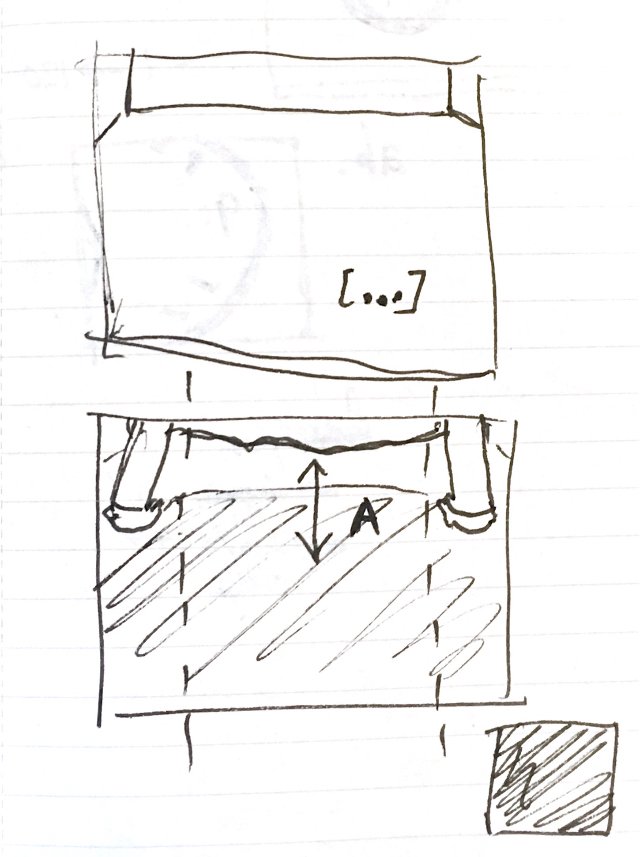 [...]
A